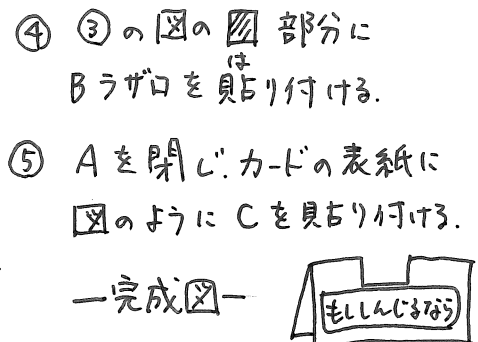 ④ ③の図の▨部分に
Bラザロを貼り付ける.
は
⑤ Aを閉じ.カードの表紙に
図のようにCを貼り付ける.
ー完成図ー
もししんじるなら